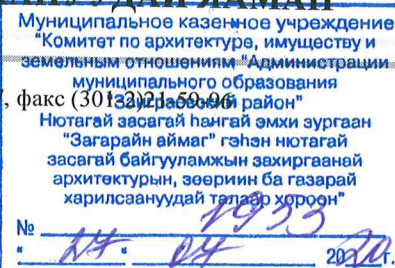 Муниципальное казенное учреждение
"Комитет по архитектуре, имуществу и
земельным отношениям "Администрации
муниципального образования
факс (301-2)21-59-96
"Заиграевский район"
Нютагай засагай һангай эмхи зургаан
"Загарайн аймаг" гэһэн нютагай
засагай байгууламжын захиргаанай
архитектурын, зөөриин ба газарай
харилсаануудай талаар хороон"
№ 1933
" 27 " 07 2020 г.